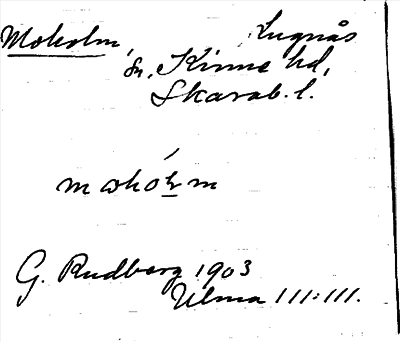 Moholm, Lugnås
sn, Kinne hd,
Skarab. l.
mωhó̀lm
G. Rudberg 1903
Ulma 111:111.